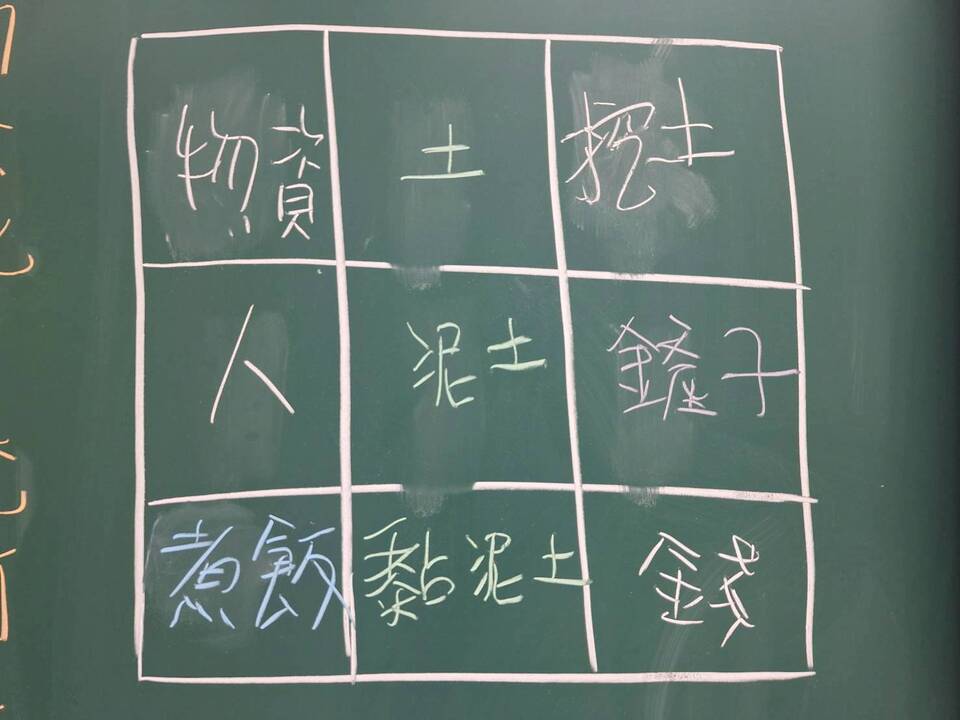 物資 土 挖土
人 泥土 鏟子
煮飯 黏泥土 金錢